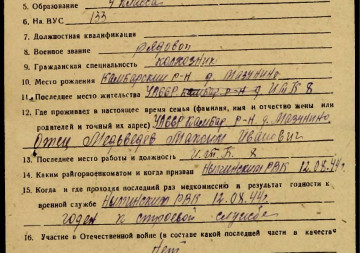 5. Образование 4 класса
6. На ВУС 133
7. Должностная квалификация
8. Военное звание рядовой
9. Гражданская специальность колхозник
10. Место рождения Камбарский р-н д. Мазунино
11. Последнее место жительства УАССР р-н д. ИТК 8
12. Где проживает в настоящее время семья (фамилия, имя и отчество жены или
родителей и точный их адрес) УАССР Камбар. р-н. д. Мазунино.
Отец Медведев Максим Иванович
13. Последнее место работы и должность И.т.К. 8
14. Каким райгорвоенкоматом и когда призван РВК 12.08.44г.
15. Когда и где проходил последний раз медкомиссию и результат годности к
военной службе РВК 12.08.44г.
годен к строевой службе
16. Участие в Отечественной войне (в составе какой последней части в качестве
Нет